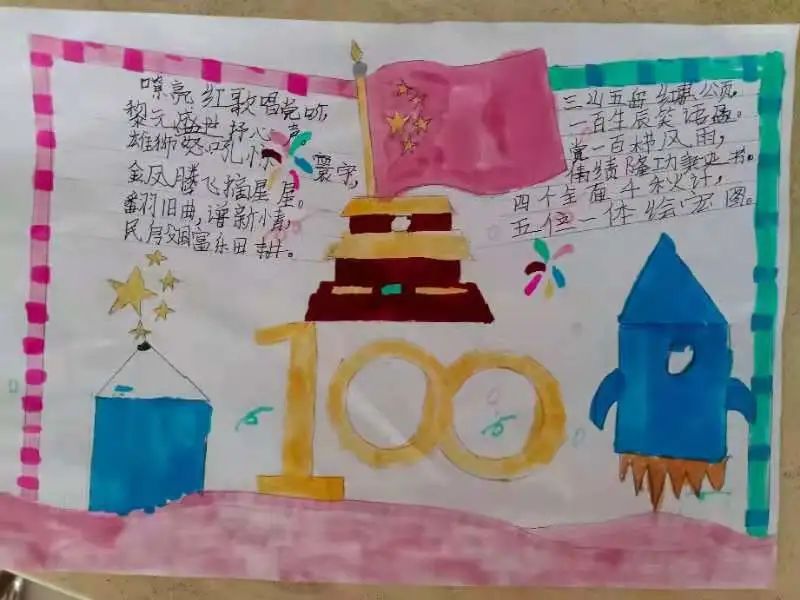 嘹亮红歌唱党听,
黎元盛世抒心声。
雄狮怒吼 寰宇,
金凤腾飞摘星星。
翻羽旧曲,谱新
民 国富乐田耕。
三山五岳红旗
一百生辰笑语
党一百栉风雨,
绩隆功 书。
四个全面千秋计,
五位一体绘宏图。
100